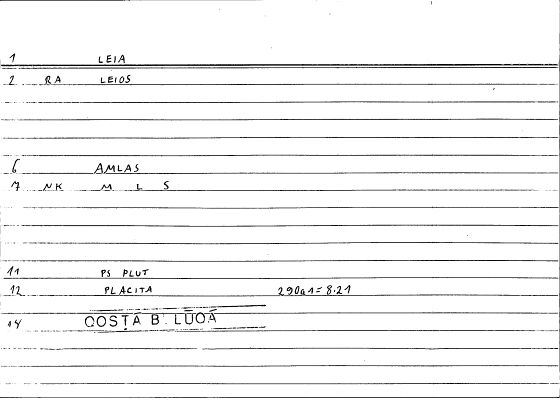 1 LEIA
2 RA LEIOS
6 AMLAS
7 NK M L S
11 PS PLUT
12 PLACITA 290a1=8.21
14 COSTĀ B. LŪOĀ